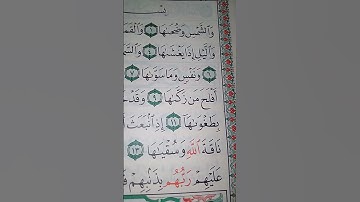 بِسْـ
وَٱلشَّمْسِ وَضُحَىٰهَا ١ وَٱلْقَمَـ
وَٱلَّيْلِ إِذَا يَغْشَىٰهَا ٤ وَٱلسَّمَـ
٦ وَنَفْسٍ وَمَا سَوَّىٰهَا ٧
أَفْلَحَ مَن زَكَّىٰهَا ٩ وَقَدْ خَـ
بِطَغْوَىٰهَا ١١ إِذِ ٱنۢبَعَثَ
نَاقَةَ ٱللَّهِ وَسُقْيَـٰهَا ١٣
عَلَيْهِمْ رَبُّهُم بِذَنۢبِهِمْ فَـ